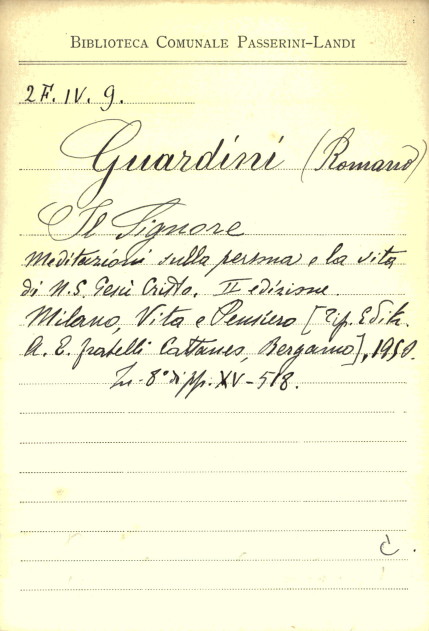 BIBLIOTECA COMUNALE PASSERINI-LANDI
2F. IV. 9.
Guardini (Romano)
Il Signore
Meditazioni sulla persona e la vita
di N.S. Gesù Cristo. II edizione.
Milano, Vita e Pensiero [Tip. Edit.
A. E. fratelli Cattaneo, Bergamo], 1950.
In-8° di pp. XV-518.
C.